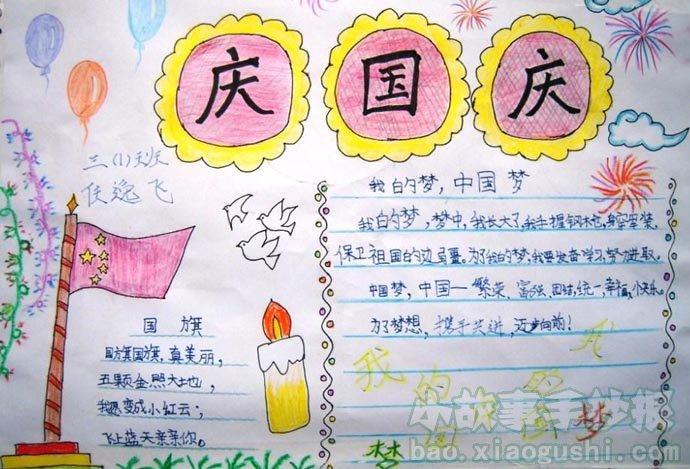 庆国庆
三(1)班
逸飞
国 旗
国旗国旗,真美丽,
五颗金照大地,
我愿变成小红云,
飞上蓝天亲亲你。
我的梦,中国梦
我的梦,梦中,我长大了,我手握钢枪,身穿军装,
保卫祖国的边疆。为了我的梦,我要发奋学习,努力进取。
中国梦,中国一繁荣、富强、团结,统一,幸福,快乐。
为了梦想,携手共进,迈步向前!
我的
梦 国 梦
小故事手抄报
bao.xiaogushi.com